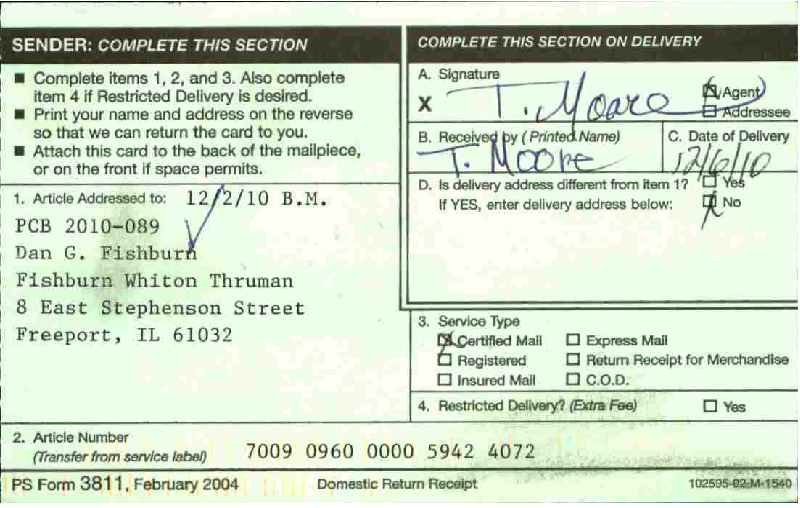 SENDER: COMPLETE THIS SECTION
■ Complete items 1, 2, and 3. Also complete
item 4 if Restricted Delivery is desired.
■ Print your name and address on the reverse
so that we can return the card to you.
■ Attach this card to the back of the mailpiece,
or on the front if space permits.
1. Article Addressed to: 12/2/10 B.M.
PCB 2010-089
Dan G. Fishburn
Fishburn Whiton Thruman
8 East Stephenson Street
Freeport, IL 61032
2. Article Number
(Transfer from service label) 7009 0960 0000 5942 4072
COMPLETE THIS SECTION ON DELIVERY
A. Signature
X T. Moore ☒ Agent
☐ Addressee
B. Received by (Printed Name) C. Date of Delivery
T. Moore 12/6/10
D. Is delivery address different from item 1? ☐ Yes
If YES, enter delivery address below: ☒ No
3. Service Type
☒ Certified Mail ☐ Express Mail
☐ Registered ☐ Return Receipt for Merchandise
☐ Insured Mail ☐ C.O.D.
4. Restricted Delivery? (Extra Fee) ☐ Yes
PS Form 3811, February 2004 Domestic Return Receipt 102595-02-M-1540